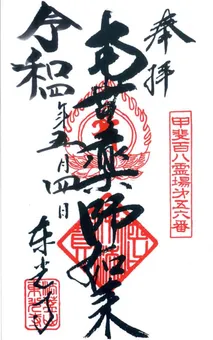 奉拝
甲斐百八霊場第五六番
南無薬師如来
令和四年五月四日
東光寺